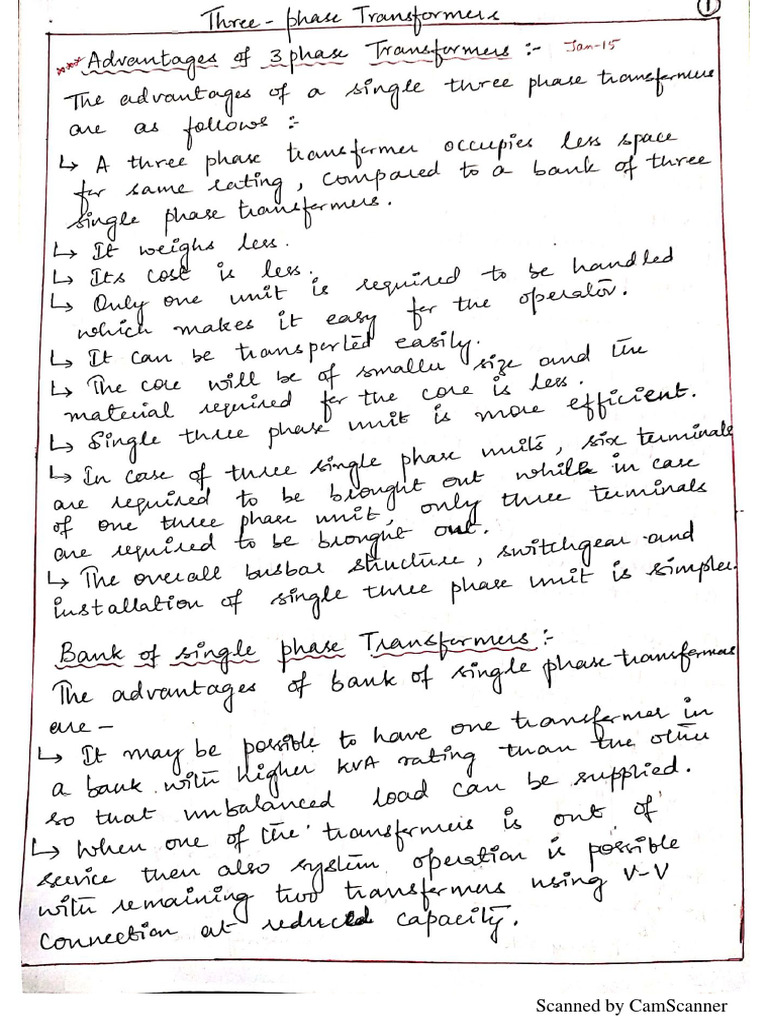 Three-phase Transformers
1
*** Advantages of 3 phase Transformers :- Jan-15
The advantages of a single three phase transformers
are as follows :-
↳ A three phase transformer occupies less space
for same rating, compared to a bank of three
single phase transformers.
↳ It weighs less.
↳ Its cost is less.
↳ Only one unit is required to be handled
which makes it easy for the operator.
↳ It can be transported easily.
↳ The core will be of smaller size and the
material required for the core is less.
↳ Single three phase unit is more efficient.
↳ In case of three single phase units, six terminals
are required to be brought out while in case
of one three phase unit, only three terminals
are required to be brought out.
↳ The overall busbar structure, switchgear and
installation of single three phase unit is simpler.
Bank of single phase Transformers :-
The advantages of bank of single phase transformers
are -
↳ It may be possible to have one transformer in
a bank with higher kVA rating than the other
so that unbalanced load can be supplied.
↳ When one of the transformers is out of
service then also system operation is possible
with remaining two transformers using V-V
connection at reduced capacity.
Scanned by CamScanner